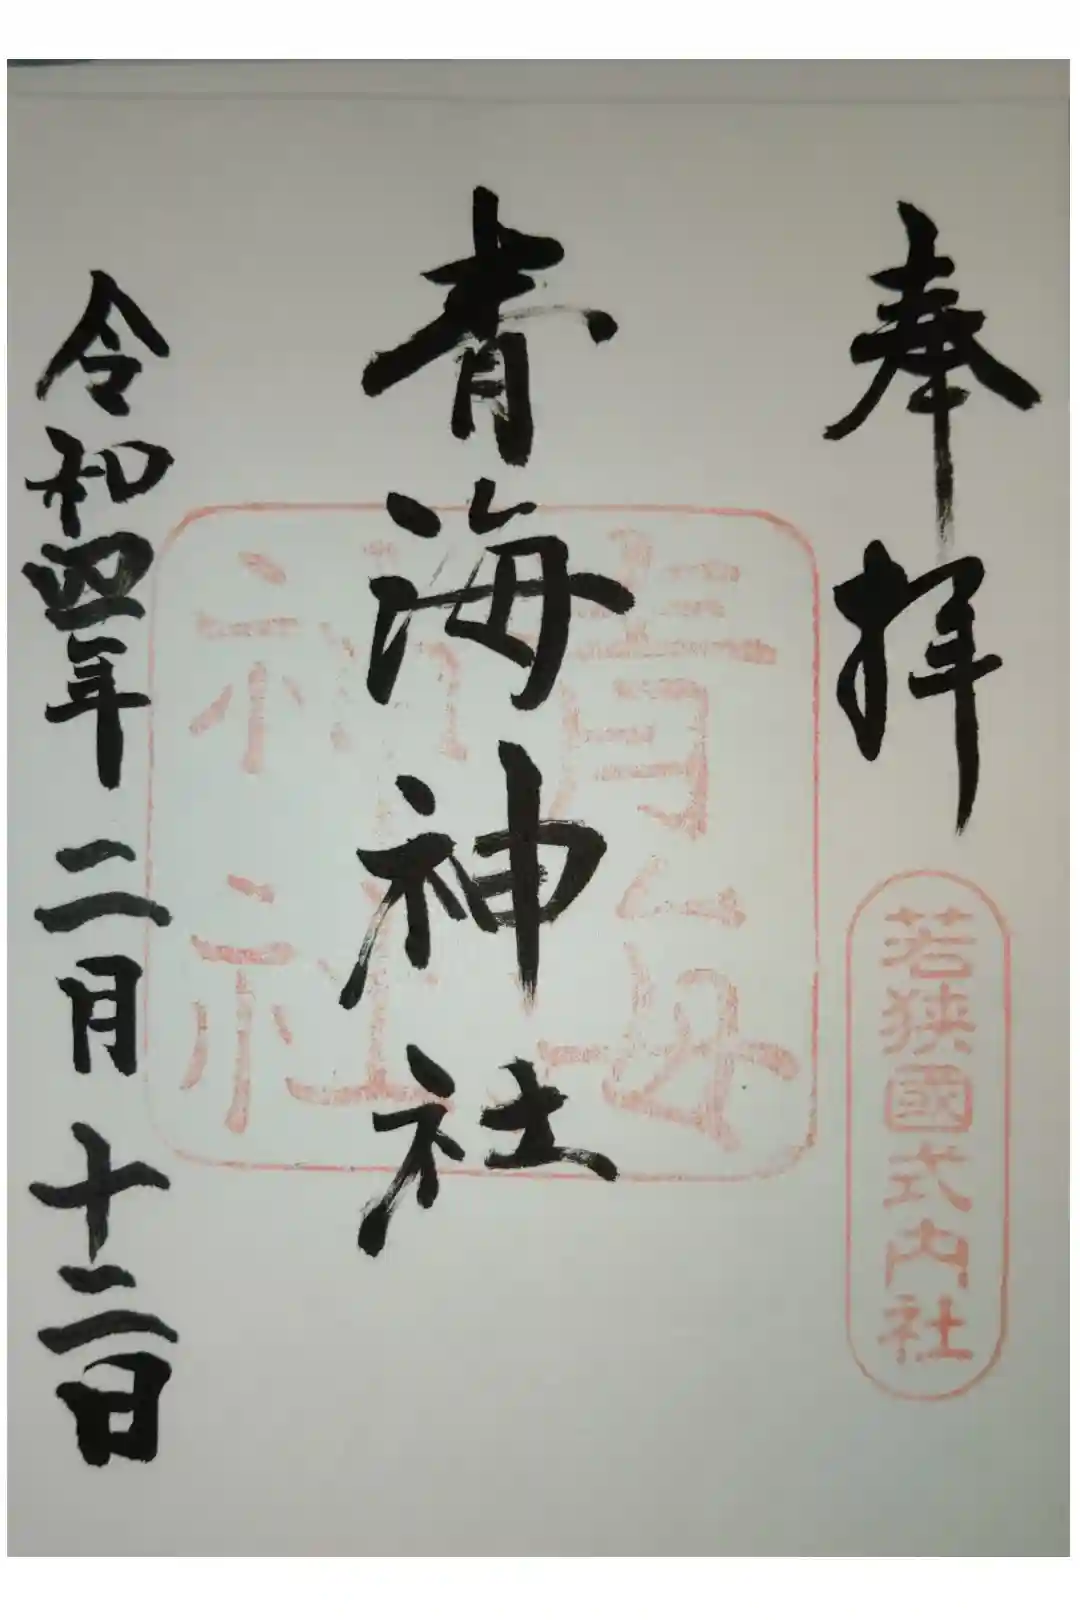 奉拝
若狭國式内社
青海神社
青海神社
令和四年二月十二日